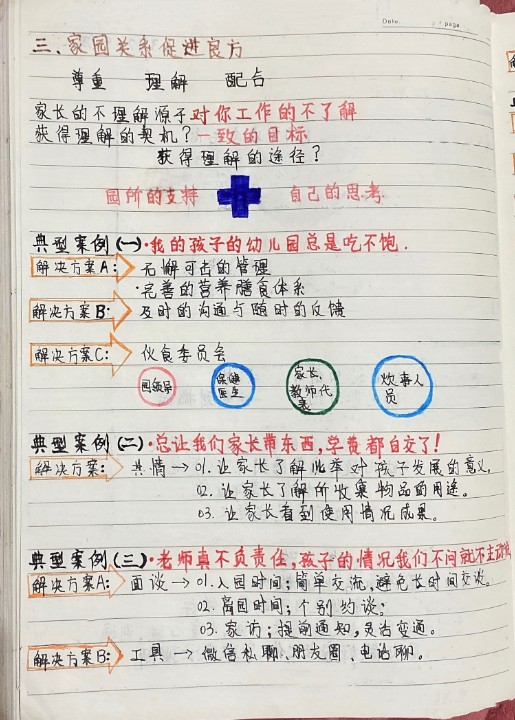 Date. page
三、家园关系促进良方
尊重 理解 配合
家长的不理解源于对你工作的不了解
获得理解的契机?一致的目标
获得理解的途径?
园所的支持 自己的思考
典型案例(一)·我的孩子的幼儿园总是吃不饱.
解决方案A: 无懈可击的管理
·完善的营养膳食体系
解决方案B: 及时的沟通与随时的反馈
解决方案C: 伙食委员会
园领导 保健医生 家长、教师代表 炊事人员
典型案例(二)·总让我们家长带东西,学费都白交了!
解决方案: 共情→01.让家长了解此举对孩子发展的意义,
02.让家长了解所收集物品的用途。
03.让家长看到使用情况成果。
典型案例(三)·老师真不负责任,孩子的情况我们不问就不主动
解决方案A: 面谈→01.入园时间;简单交流,避免长时间交谈。
02.离园时间;个别约谈;
03.家访;提前通知,灵活变通。
解决方案B: 工具→微信私聊、朋友圈、电话聊。